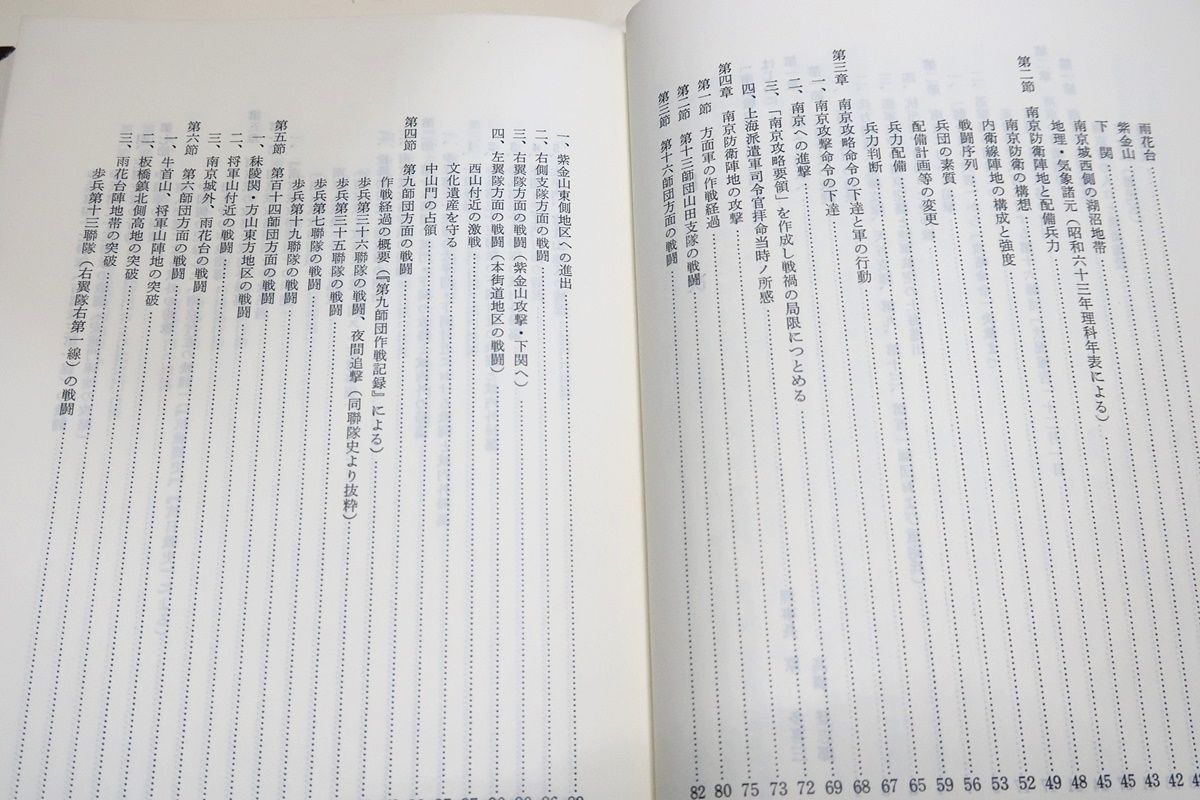 雨花台
紫金山
下関
南京城西側の湖沼地帯
地理・気象諸元（昭和六十三年理科年表による）
第二節 南京防衛陣地と配備兵力
南京防衛の構想
内衛線陣地の構成と強度
戦闘序列
兵団の素質
配備計画等の変更
兵力配備
兵力判断
第三章 南京攻略命令の下達と軍の行動
一、南京攻撃命令の下達
二、南京への進撃
三、「南京攻略要領」を作成し戦禍の局限につとめる
四、上海派遣軍司令官拝命当時ノ所感
第四章 南京防衛陣地の攻撃
第一節 方面軍の作戦経過
第二節 第十三師団山田支隊の戦闘
第三節 第十六師団方面の戦闘
42
43
45
45
48
49
52
53
56
59
65
67
68
69
72
73
75
80
82
一、紫金山東側地区への進出
二、右側支隊方面の戦闘
三、右翼隊方面の戦闘（紫金山攻撃・下関へ）
四、左翼隊方面の戦闘（本街道地区の戦闘）
西山付近の激戦
文化遺産を守る
中山門の占領
第四節 第九師団方面の戦闘
作戦経過の概要（『第九師団作戦記録』による）
歩兵第三十六聯隊の戦闘、夜間追撃（同聯隊史より抜粋）
歩兵第三十五聯隊の戦闘
歩兵第七聯隊の戦闘
歩兵第十九聯隊の戦闘
第五節 第百十四師団方面の戦闘
一、秣陵関・方山東方地区の戦闘
二、将軍山付近の戦闘
三、南京城外、雨花台の戦闘
第六節 第六師団方面の戦闘
一、牛首山、将軍山陣地の突破
二、板橋鎮北側高地の突破
三、雨花台陣地帯の突破
歩兵第十三聯隊（右翼隊右第一線）の戦闘